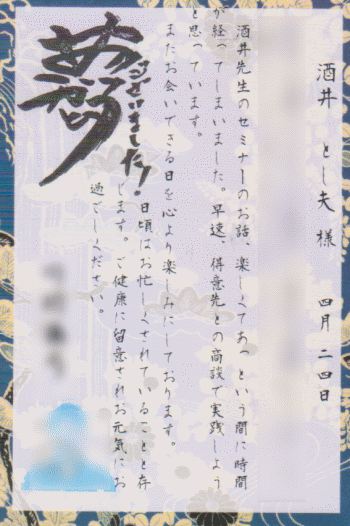 酒井 とし夫 様 四月二四日
酒井先生のセミナーのお話、楽しくてあっという間に時間
が経ってしまいました。早速、得意先との商談で実践しよう
と思っています。
またお会いできる日を心より楽しみにしております。
日頃はお忙しくされていることと存
じます。ご健康に留意されお元気にお
過ごしください。
ありがとう
ございました!